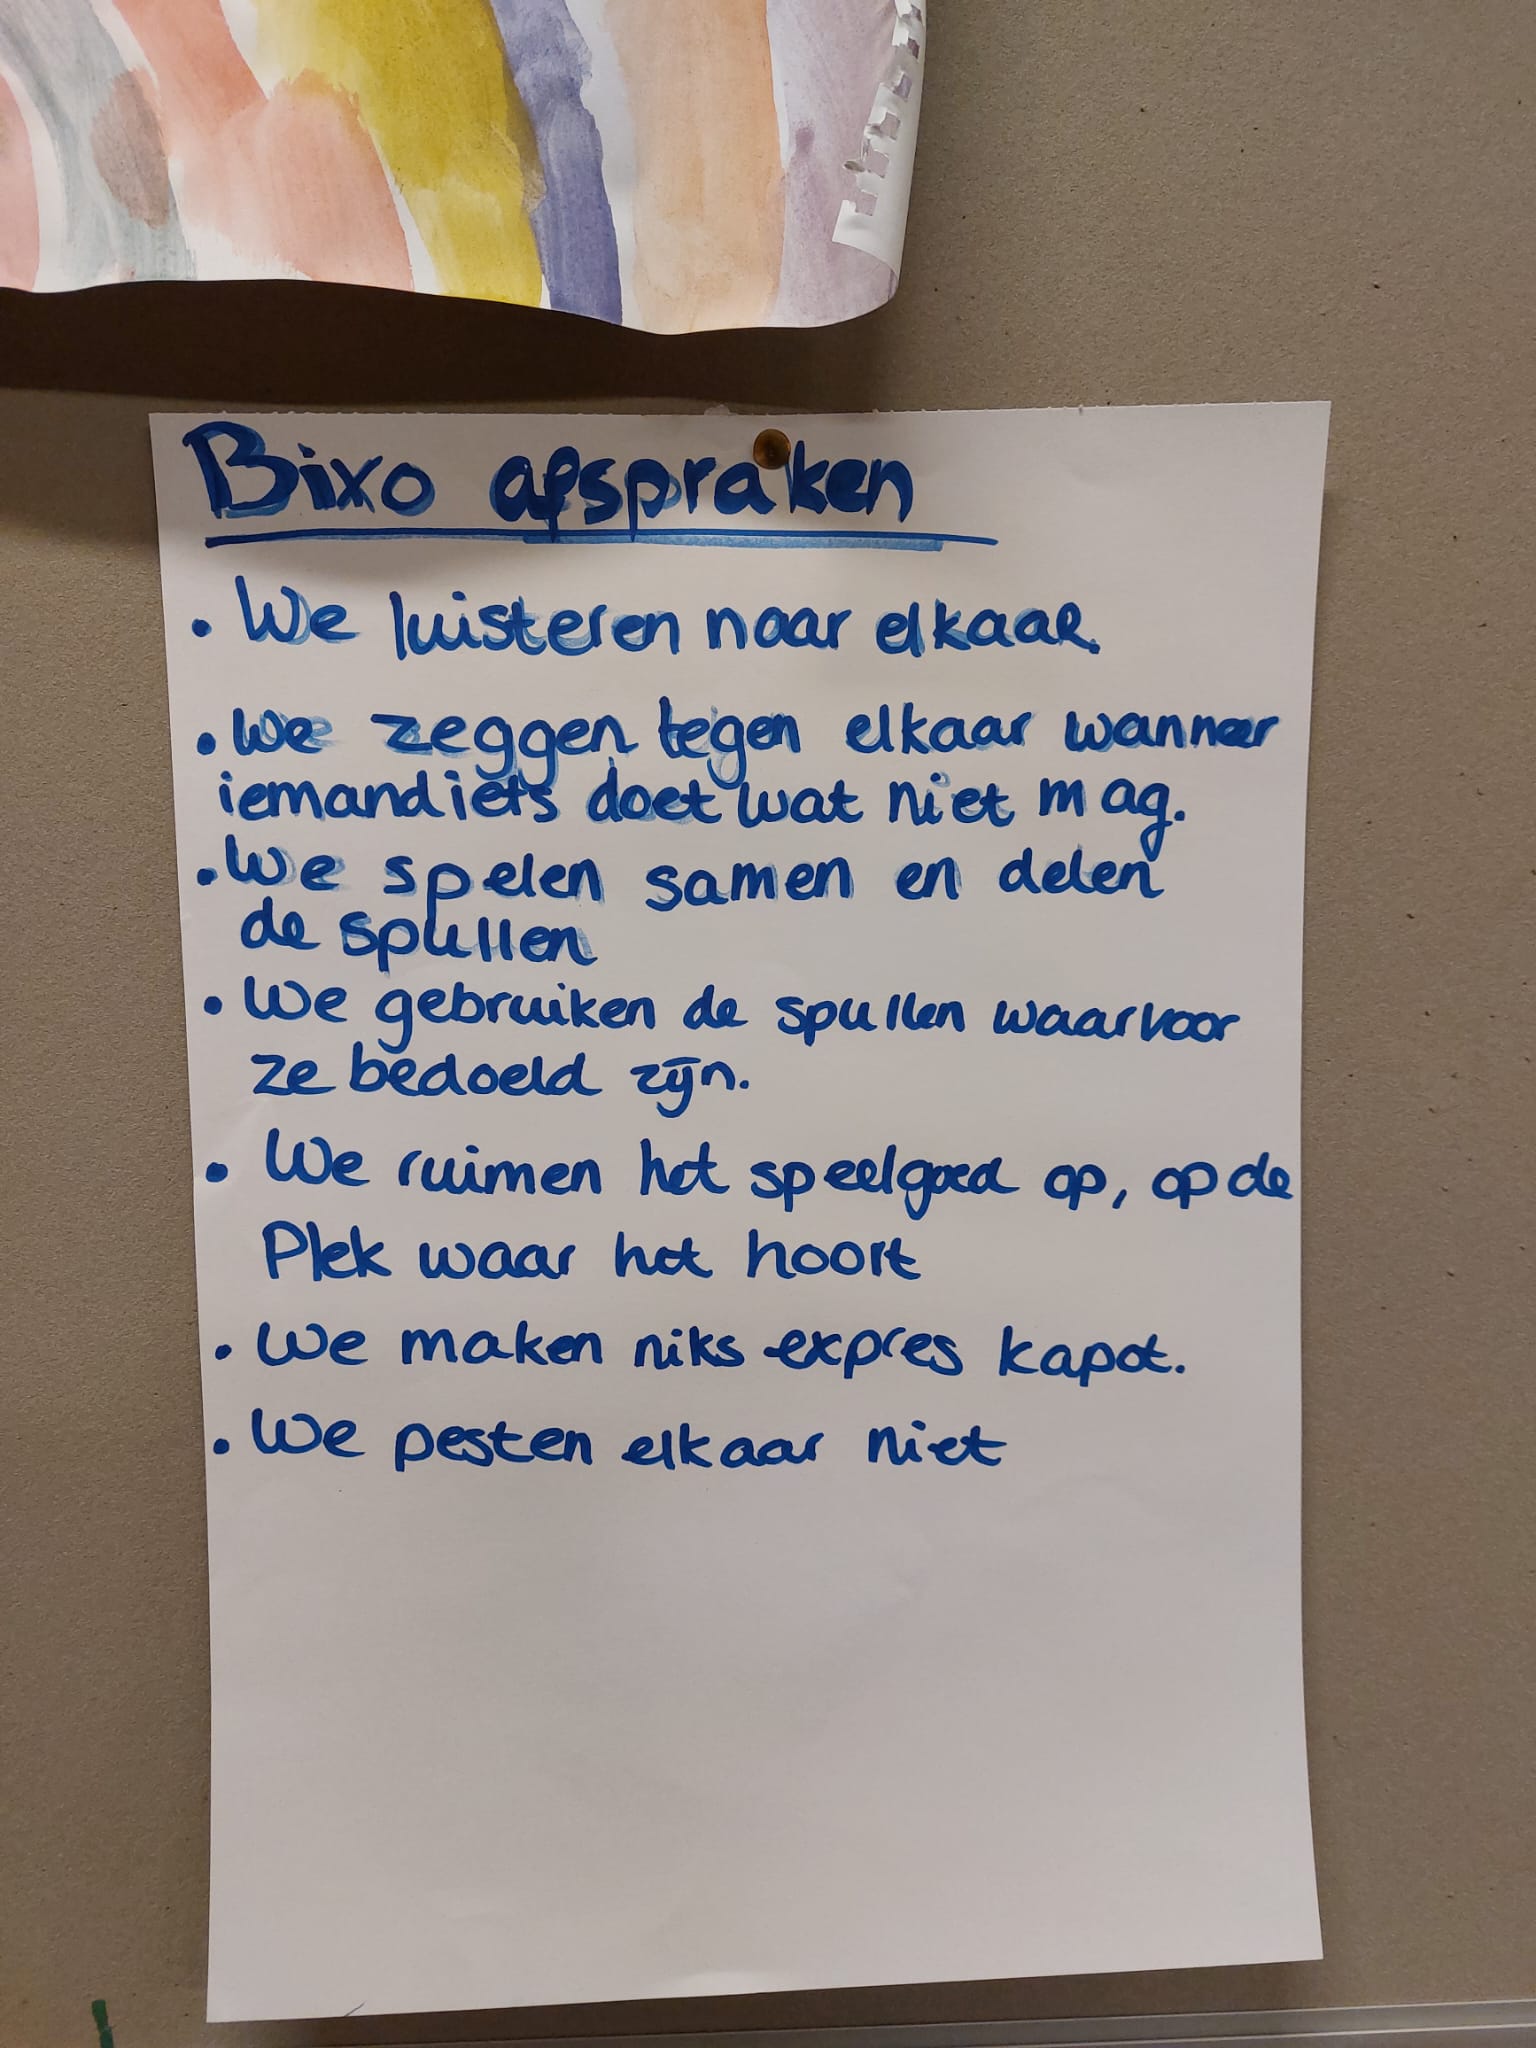 Bixo afspraken
• We luisteren naar elkaar.
• We zeggen tegen elkaar wanneer
iemand iets doet wat niet mag.
• We spelen samen en delen
de spullen
• We gebruiken de spullen waarvoor
ze bedoeld zijn.
• We ruimen het speelgoed op, op de
Plek waar het hoort
• We maken niks expres kapot.
• We pesten elkaar niet